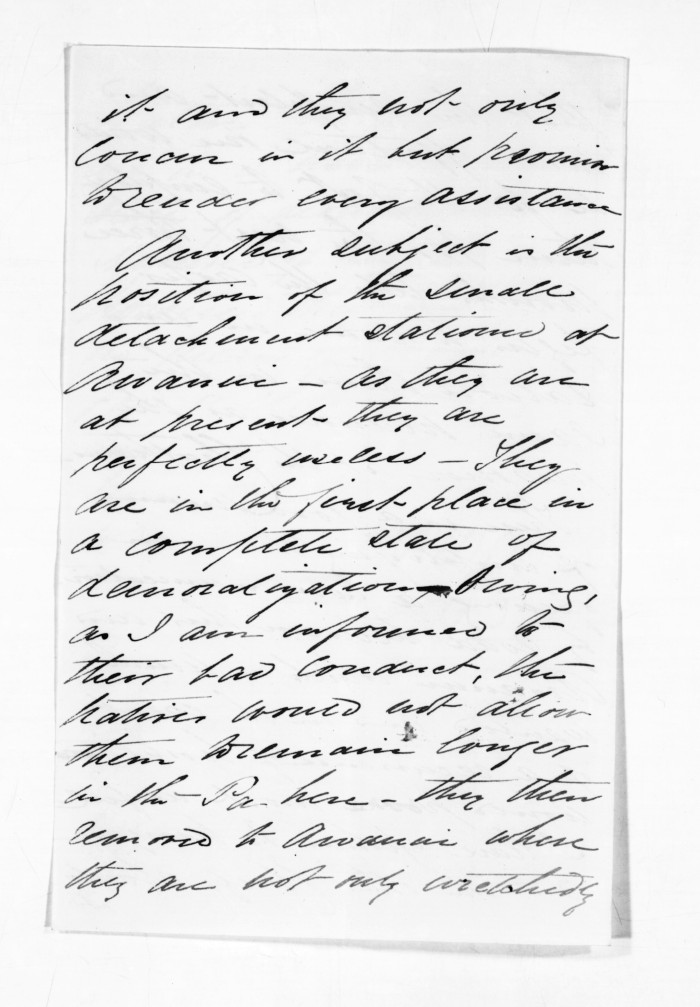 it and they not only
concur in it but promise
to render every assistance
Another subject is the
position of the small
detachment stationed at
Awanui - as they are
at present they are
perfectly useless - They
are in the first place in
a complete state of
demoralization, Owing,
as I am informed to
their bad conduct, the
natives would not allow
them to remain longer
in the Pa here - they then
removed to Awanui where
they are not only wretchedly